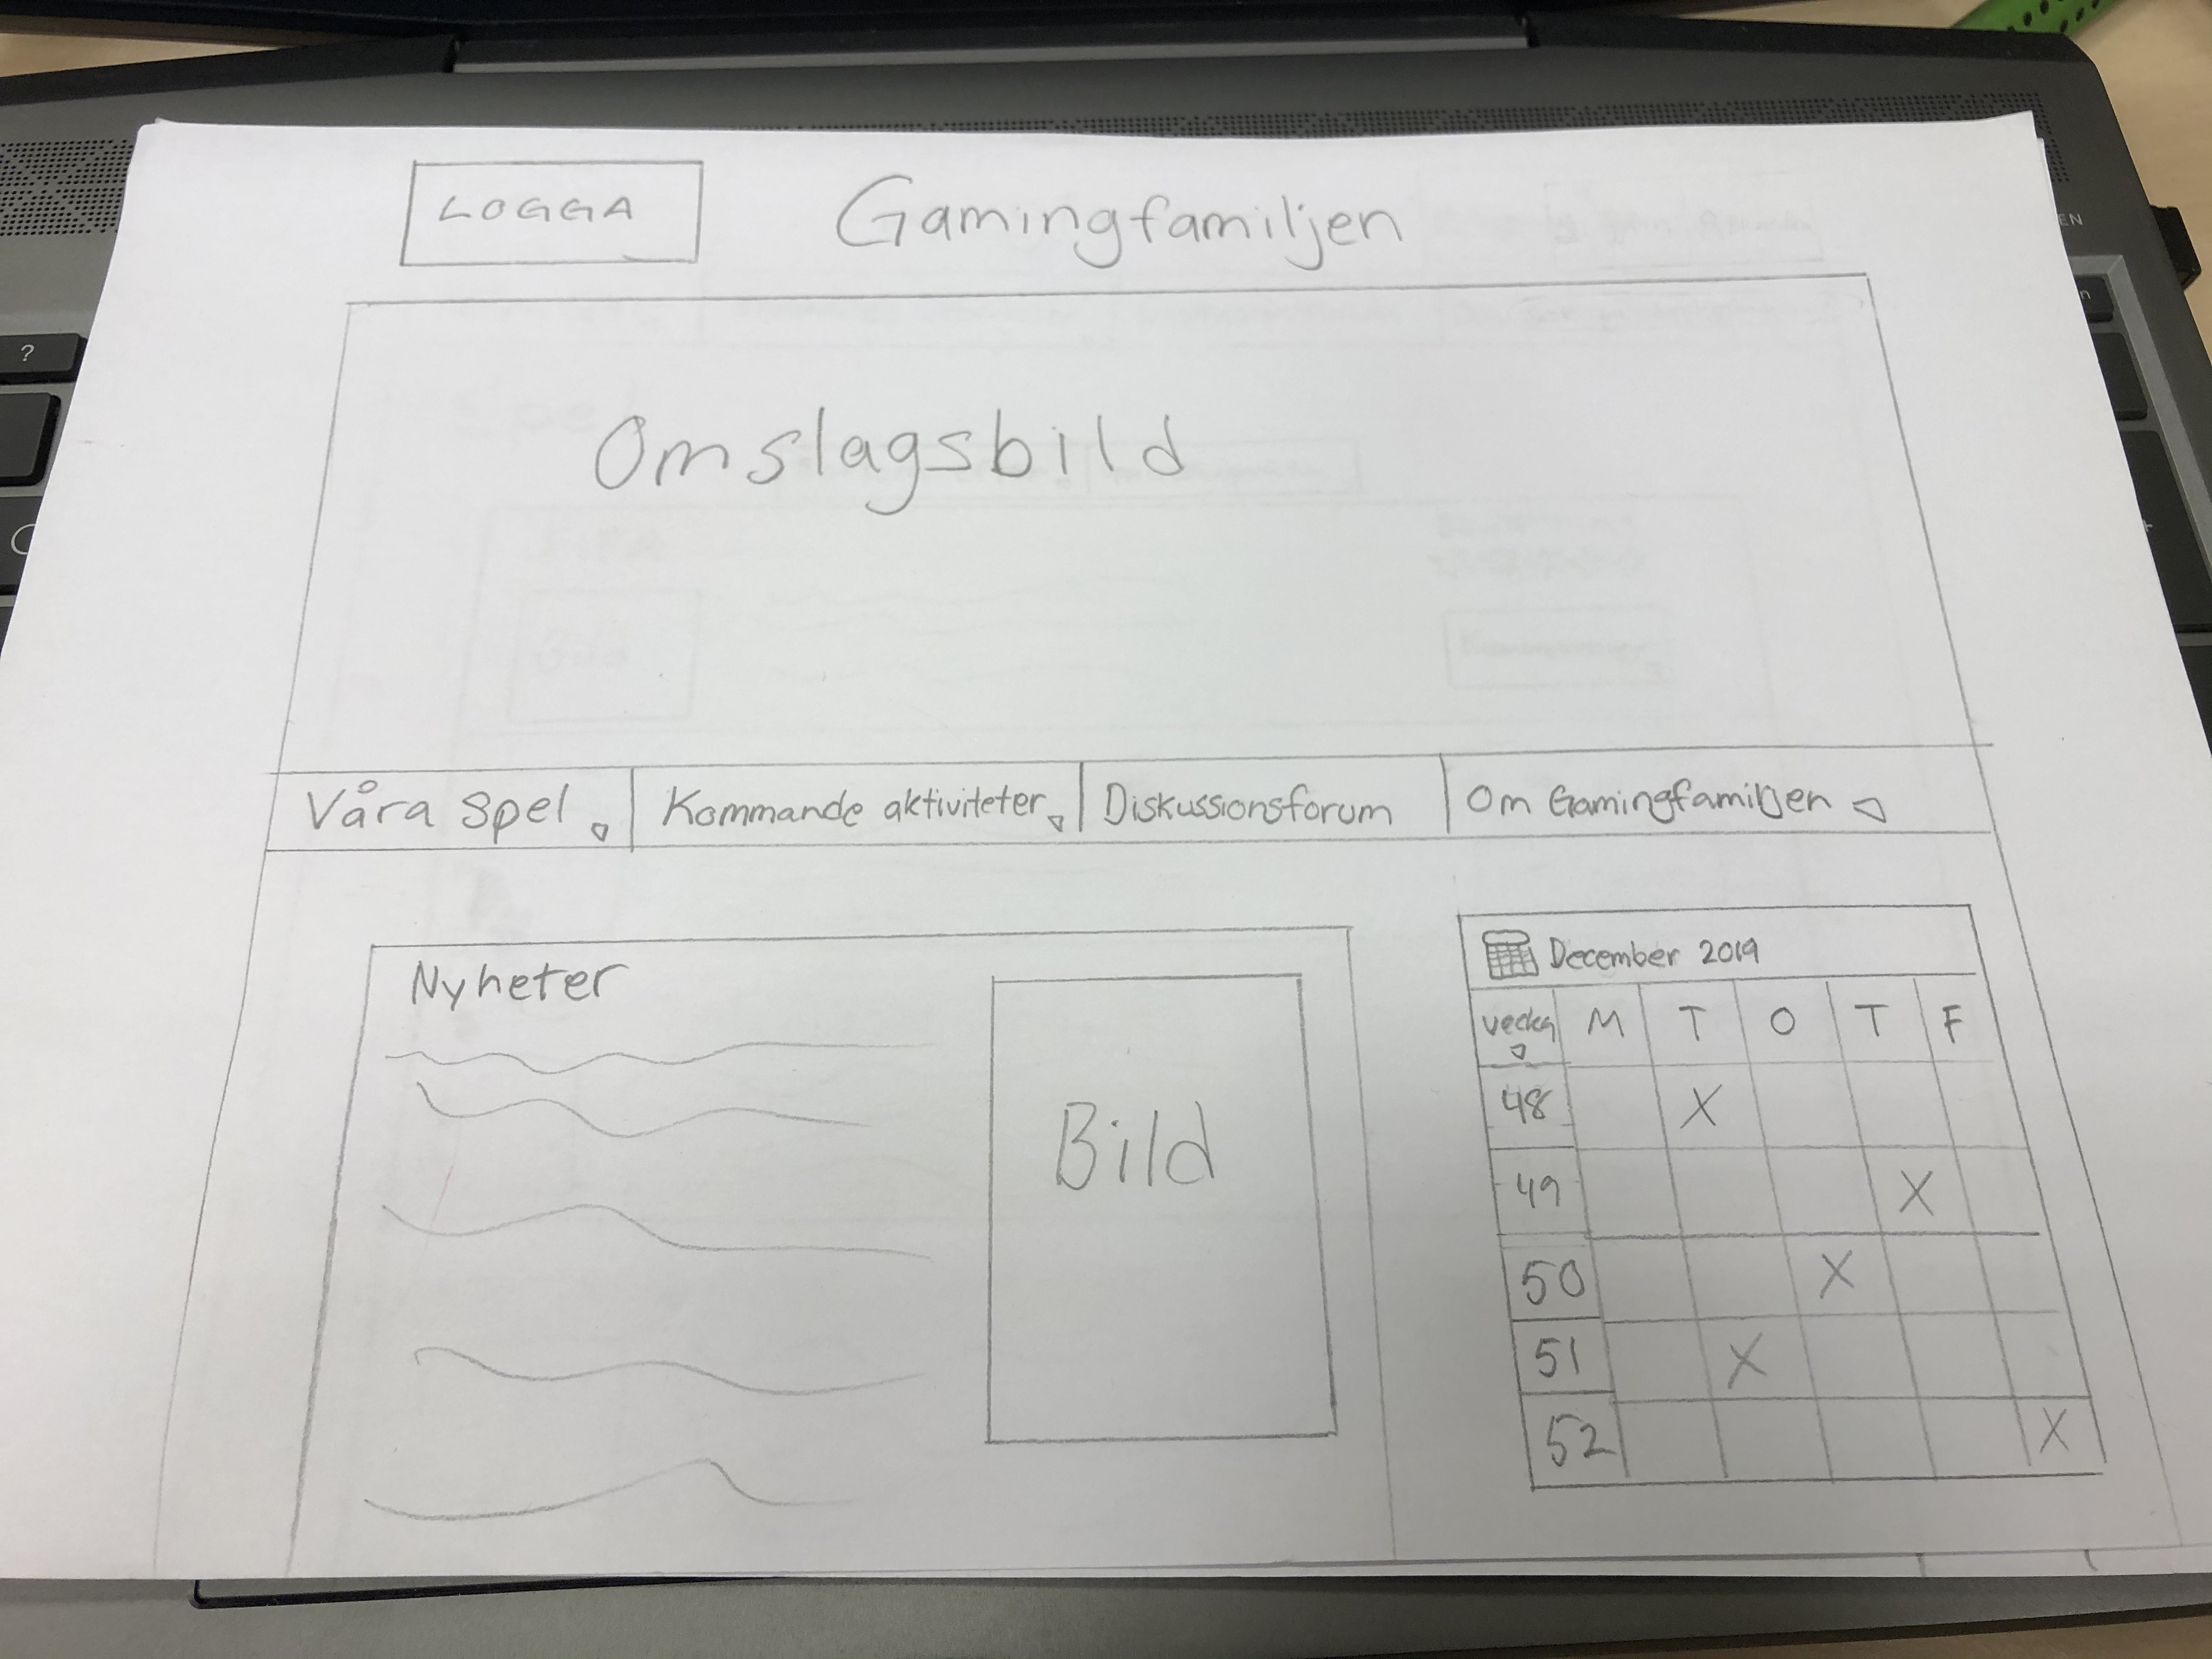 LOGGA
Gamingfamiljen
Omslagsbild
Våra Spel
Kommande aktiviteter
Diskussionsforum
Om Gamingfamiljen
Nyheter
Bild
December 2019
vecka M T O T F
48 X
49 X
50 X
51 X
52 X
?